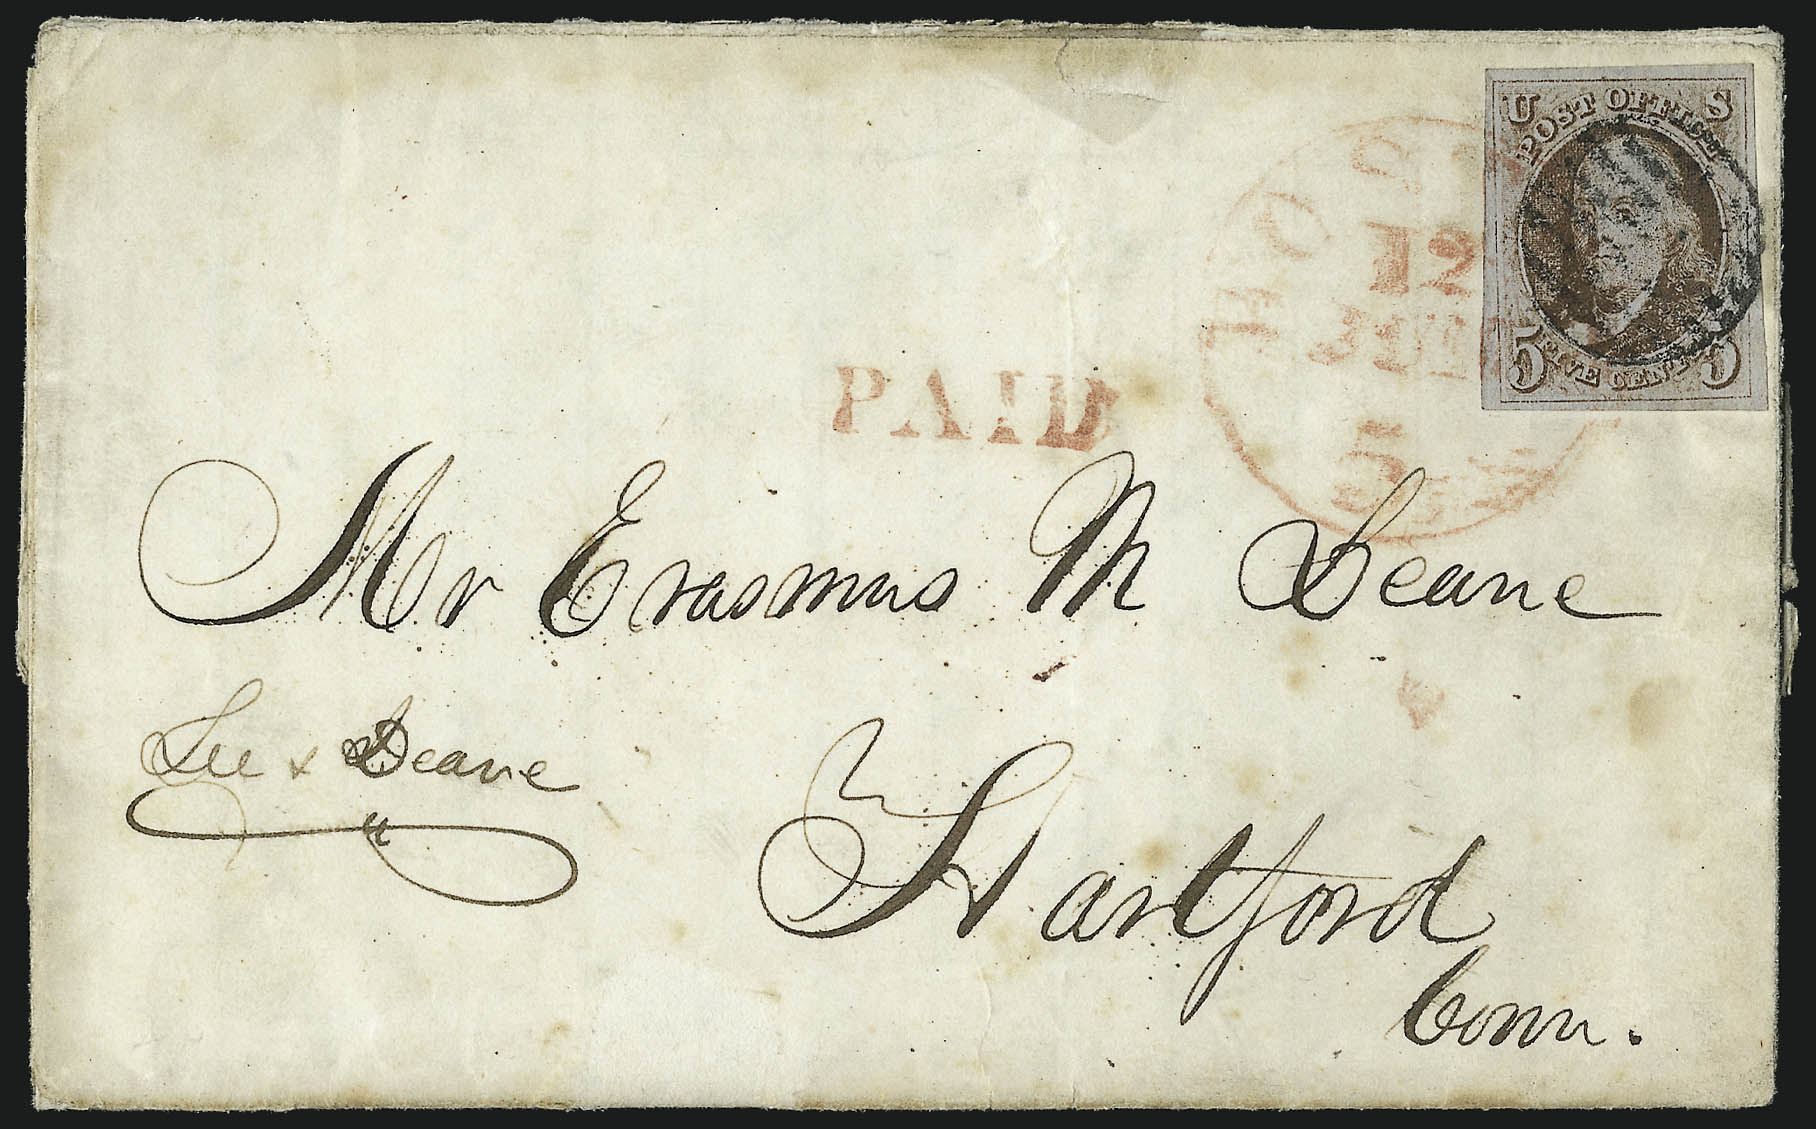 U S
POST OFFICE
12
5
5
FIVE CENTS
5
PAID
Mr Erasmus M Deane
Lee & Deane
Hartford
Conn.